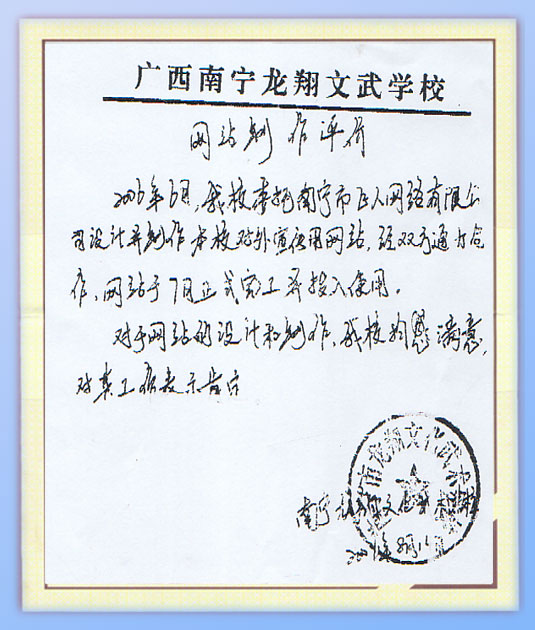 广西南宁龙翔文武学校
网站制作评价
2006年6月,我校委托南宁市巨人网络有限公
司设计并制作本校对外宣传用网站,经双方通力合
作,网站于7月正式完工并投入使用。
对于网站的设计和制作,我校均感满意,
对其工作表示肯定
南宁市龙翔文化武术
南宁